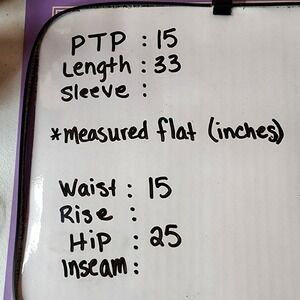 PTP : 15
Length : 33
Sleeve :
*measured flat (inches)
Waist : 15
Rise :
Hip : 25
Inseam :